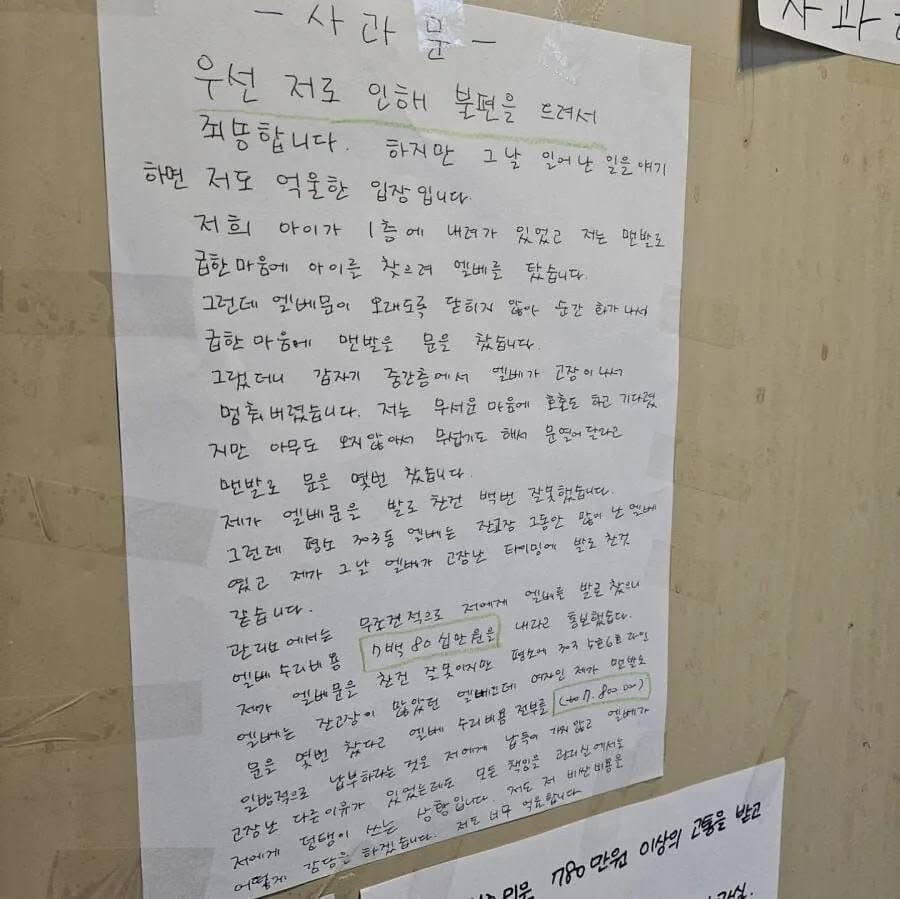 - 사 과 문 -
우선 저로 인해 불편을 드려서
죄송합니다. 하지만 그날 일어난 일을 얘기
하면 저도 억울한 입장입니다.
저희 아이가 1층에 내려가 있었고 저는 맨발로
급한 마음에 아이를 찾으려 엘베를 탔습니다.
그런데 엘베문이 오래도록 닫히지 않아 순간 화가 나서
급한 마음에 맨발을 문을 찼습니다.
그랬더니 갑자기 중간층에서 엘베가 고장이 나서
멈춰버렸습니다. 저는 무서운 마음에 호출도 하고 기다렸
지만 아무도 오지않아서 무섭기도 해서 문열어달라고
맨발로 문을 몇번 찼습니다.
제가 엘베문을 발로 찬건 백번 잘못했습니다.
그런데 평소 303동 엘베는 잔고장 그동안 많이 난 엘베
였고 제가 그날 엘베가 고장난 타이밍에 발로 찬것
같습니다.
관리소에서는 무조건적으로 저에게 엘베를 발로 찼으니
엘베 수리비용 7백 80 십만원을 내라고 통보했습니다.
제가 엘베문을 찬건 잘못이지만 평소에 303 5호6호 라인
엘베는 잔고장이 많았던 엘베인데 여자인 제가 맨발로
문을 몇번 찼다고 엘베 수리비용 전부를
일방적으로 납부하라는 것은 저에게 납득이 가지 않고 엘베가
고장난 다른이유가 있었는데도 모든 책임을 관리실에서는
저에게 덤탱이 쓰는 상황입니다. 저도 저 비싼 비용을
어떻게 감당을 하겠습니다. 저도 너무 억울합니다
사과
780만원 이상의 고통을 받고